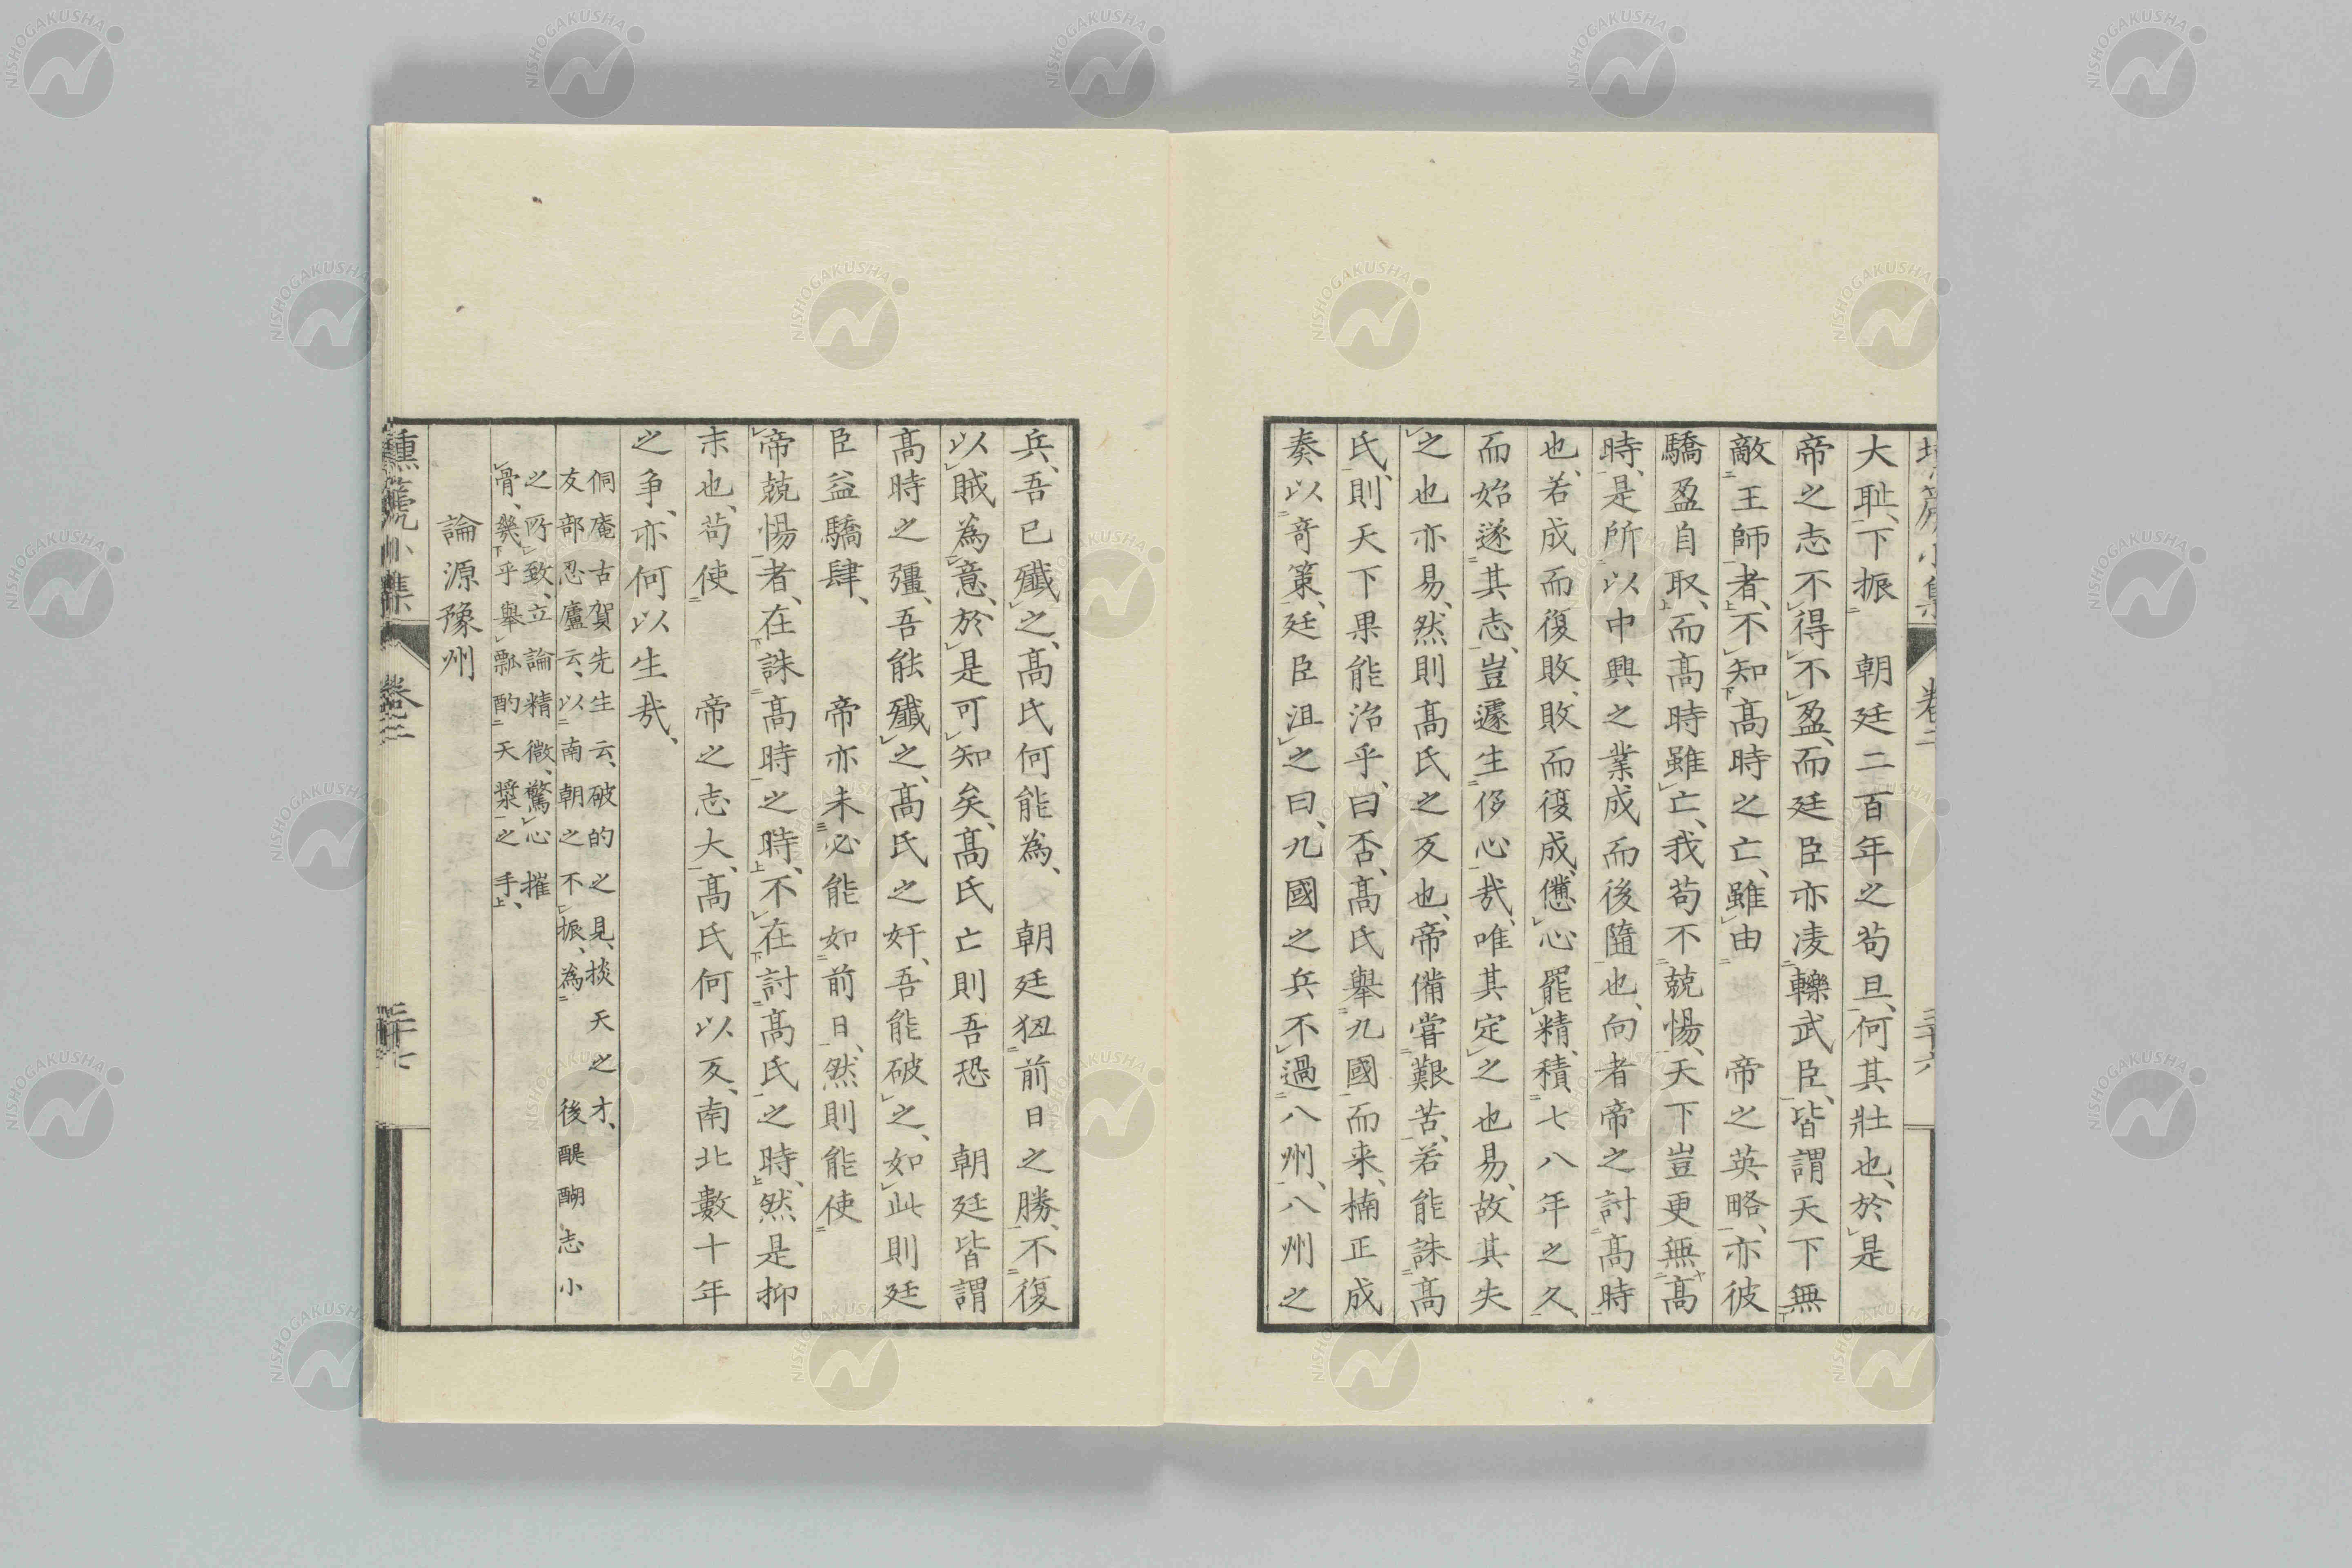 大耻、下振 朝廷二百年之苟且、何其壯也、於是
帝之志不得不盈、而廷臣亦凌轢武臣、皆謂天下無
敵王師者、不知高時之亡、雖由 帝之英略、亦彼
驕盈自取、而高時雖亡、我苟不兢惕、天下豈更無高
時、是所以中興之業成而後隨也、向者帝之討高時
也、若成而復敗、敗而復成、憊心罷精、積七八年之久、
而始遂其志、豈遽生侈心哉、唯其定之也易、故其失
之也亦易、然則高氏之反也、帝備嘗艱苦、若能誅高
氏、則天下果能治乎、曰否、高氏舉九國而来、楠正成
奏以奇策、廷臣沮之曰、九國之兵不過八州、八州之
兵、吾已殲之、高氏何能為、 朝廷狃前日之勝、不復
以賊為意、於是可知矣、高氏亡則吾恐 朝廷皆謂
高時之彊、吾能殲之、高氏之奸、吾能破之、如此則廷
臣益驕肆、 帝亦未必能如前日、然則能使
帝兢惕者、在誅高時之時、不在討高氏之時、然是抑
末也、苟使 帝之志大、高氏何以反、南北數十年
之争、亦何以生哉、
侗庵古賀先生云、破的之見、掞天之才、
友部忍廬云、以南朝之不振、為後醍醐志小
之所致、立論精微、驚心摧
骨、幾乎舉瓢酌天漿之手、
論源豫州
壎篪小集 卷三 三十七